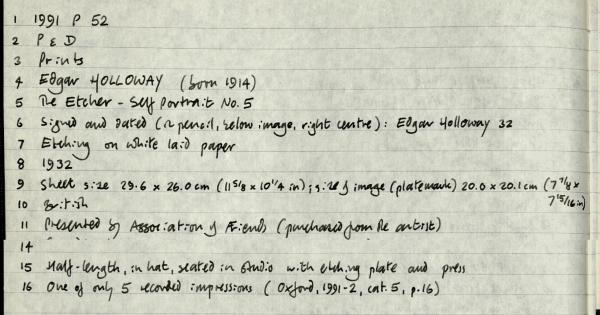 1 1991 P 52
2 P & D
3 Prints
4 Edgar HOLLOWAY (born 1914)
5 The Etcher - Self Portrait No. 5
6 Signed and dated (in pencil, below image, right centre): Edgar Holloway 32
7 Etching on white laid paper
8 1932
9 Sheet size 29.6 x 26.0 cm (11 5/8 x 10 1/4 in); size of image (platemark) 20.0 x 20.1 cm (7 7/8 x
7 15/16 in)
10 British
11 Presented by Association of Friends (purchased from the artist)
14
15 Half-length, in hat, seated in studio with etching plate and press
16 One of only 5 recorded impressions (Oxford, 1991-2, cat. 5, p.16)